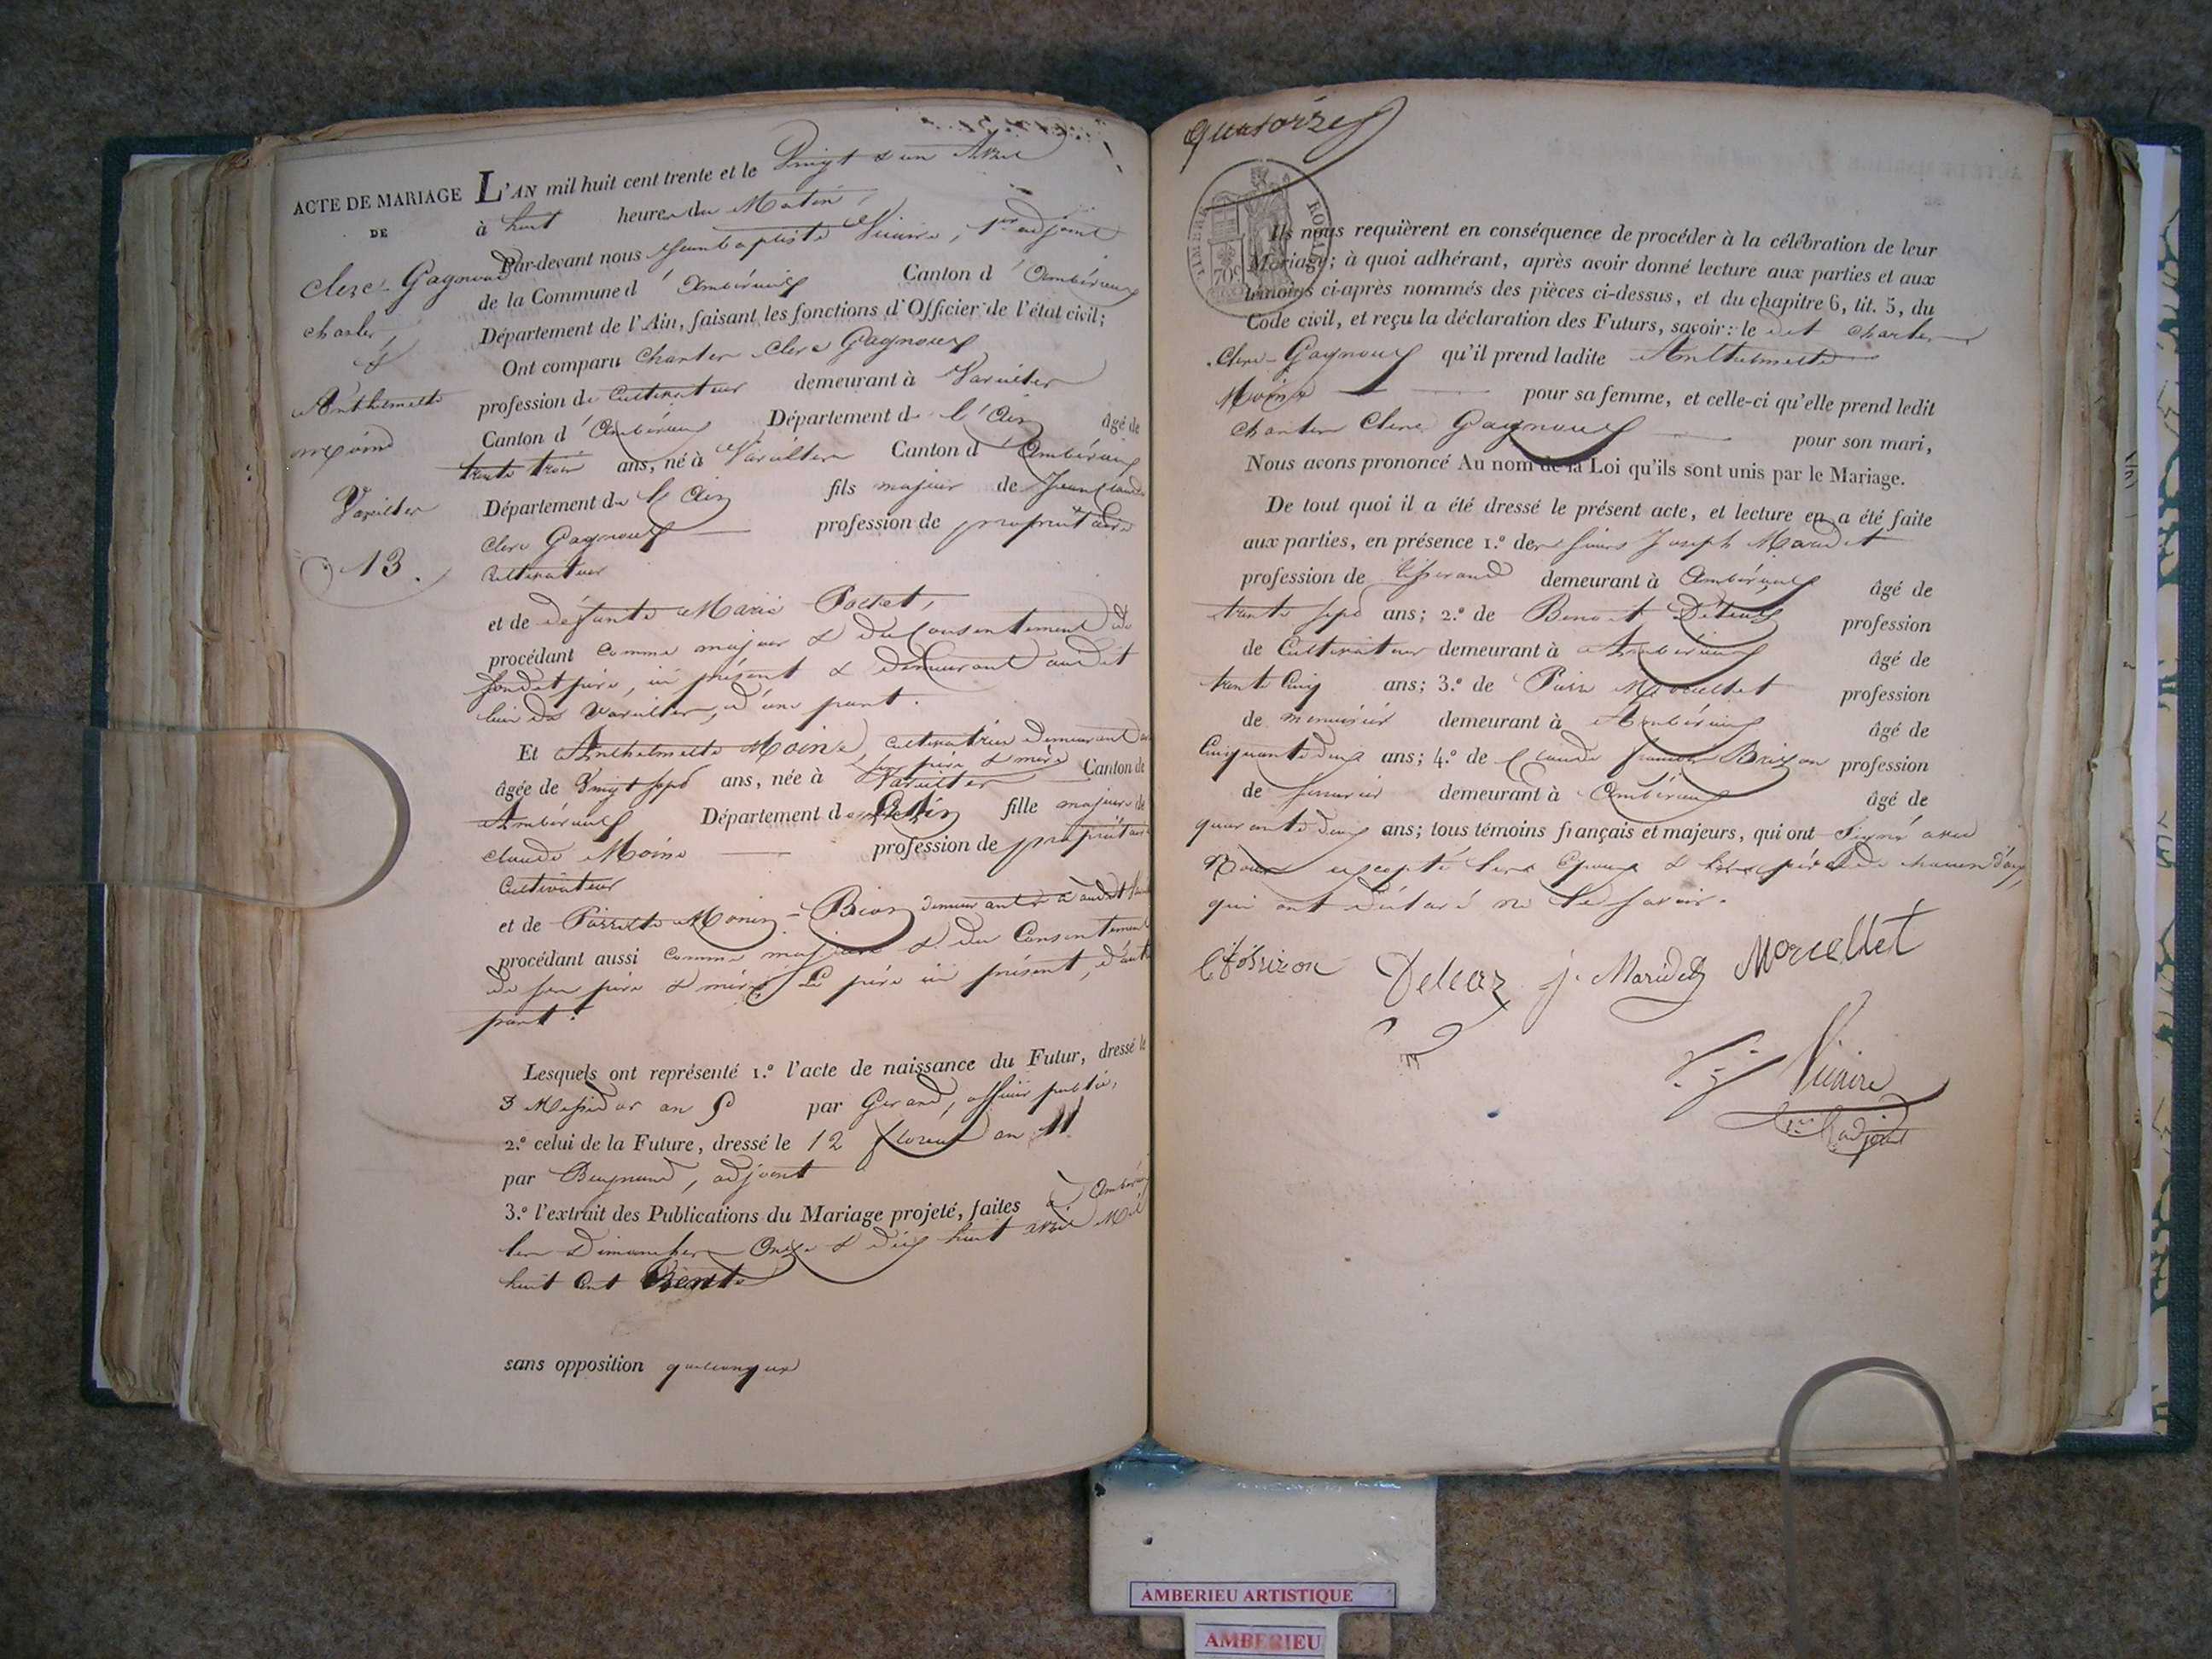 ACTE DE MARIAGE
DE
Clerc-Gagnoux
Charles,
&
Anthelmette
Moine
Vareilles
13.
L'AN mil huit cent trente et le Vingt & un Avril
à huit heures du Matin,
Par-devant nous Jeanbaptiste Vicaire, 1er adjoint
de la Commune d'Ambérieux Canton d'Ambérieux
Département de l'Ain, faisant les fonctions d'Officier de l'état civil;
Ont comparu Charles Clerc Gagnoux
profession de Cultivateur demeurant à Vareilles
Canton d'Ambérieux Département de l'Ain âgé de
trente trois ans, né à Vareilles Canton d'Ambérieux
Département de l'Ain fils majeur de Jean Claude
Clerc Gagnoux profession de propriétaire
Cultivateur
et de défunte Marie
procédant comme majeur & du Consentement de
sondit père, ici présent & demeurant audit
lieu de Vareilles, d'une part.
Et Anthelmette Moine, cultivatrice demeurant
ses père & mère
âgée de Vingt sept ans, née à Vareilles Canton de
Ambérieux Département de l'Ain fille majeure de
Claude Moine profession de propriétaire
Cultivateur
et de Pierrette Monin-Bion demeurants audit
procédant aussi comme majeure & du Consentement
de ses père & mère, Le père ici présent, d'autre
part.
Lesquels ont représenté 1.º l'acte de naissance du Futur, dressé le
3 Messidor an 5 par Gerand, officier public,
2.º celui de la Future, dressé le 12 floréal an 11
par adjoint
3.º l'extrait des Publications du Mariage projeté, faites à Ambérieux
les Dimanches Onze & dix huit avril Mil
huit Cent Trente
sans opposition quelconque
quatorze
TIMBRE ROYAL
70c
Ils nous requièrent en conséquence de procéder à la célébration de leur
Mariage; à quoi adhérant, après avoir donné lecture aux parties et aux
témoins ci-après nommés des pièces ci-dessus, et du chapitre 6, tit. 5, du
Code civil, et reçu la déclaration des Futurs, savoir: le dit Charles
Clerc-Gagnoux qu'il prend ladite Anthelmette
Moine pour sa femme, et celle-ci qu'elle prend ledit
Charles Clerc Gagnoux pour son mari,
Nous avons prononcé Au nom de la Loi qu'ils sont unis par le Mariage.
De tout quoi il a été dressé le présent acte, et lecture en a été faite
aux parties, en présence 1.º des sieurs Joseph Maridet
profession de tisserand demeurant à Ambérieux âgé de
trente sept ans; 2.º de Benoit profession
de Cultivateur demeurant à Ambérieux âgé de
trente Cinq ans; 3.º de Pierre Morcellet profession
de menuisier demeurant à Ambérieux âgé de
Cinquante deux ans; 4.º de Claude françois Brizon profession
de serrurier demeurant à Ambérieux âgé de
quarante deux ans; tous témoins français et majeurs, qui ont Signé avec
Nous excepté les Epoux & les pères de chacun d'eux,
qui ont déclaré ne le savoir.
j. Maridet Morcellet
Vicaire
1er adjoint
AMBERIEU ARTISTIQUE
AMBERIEU